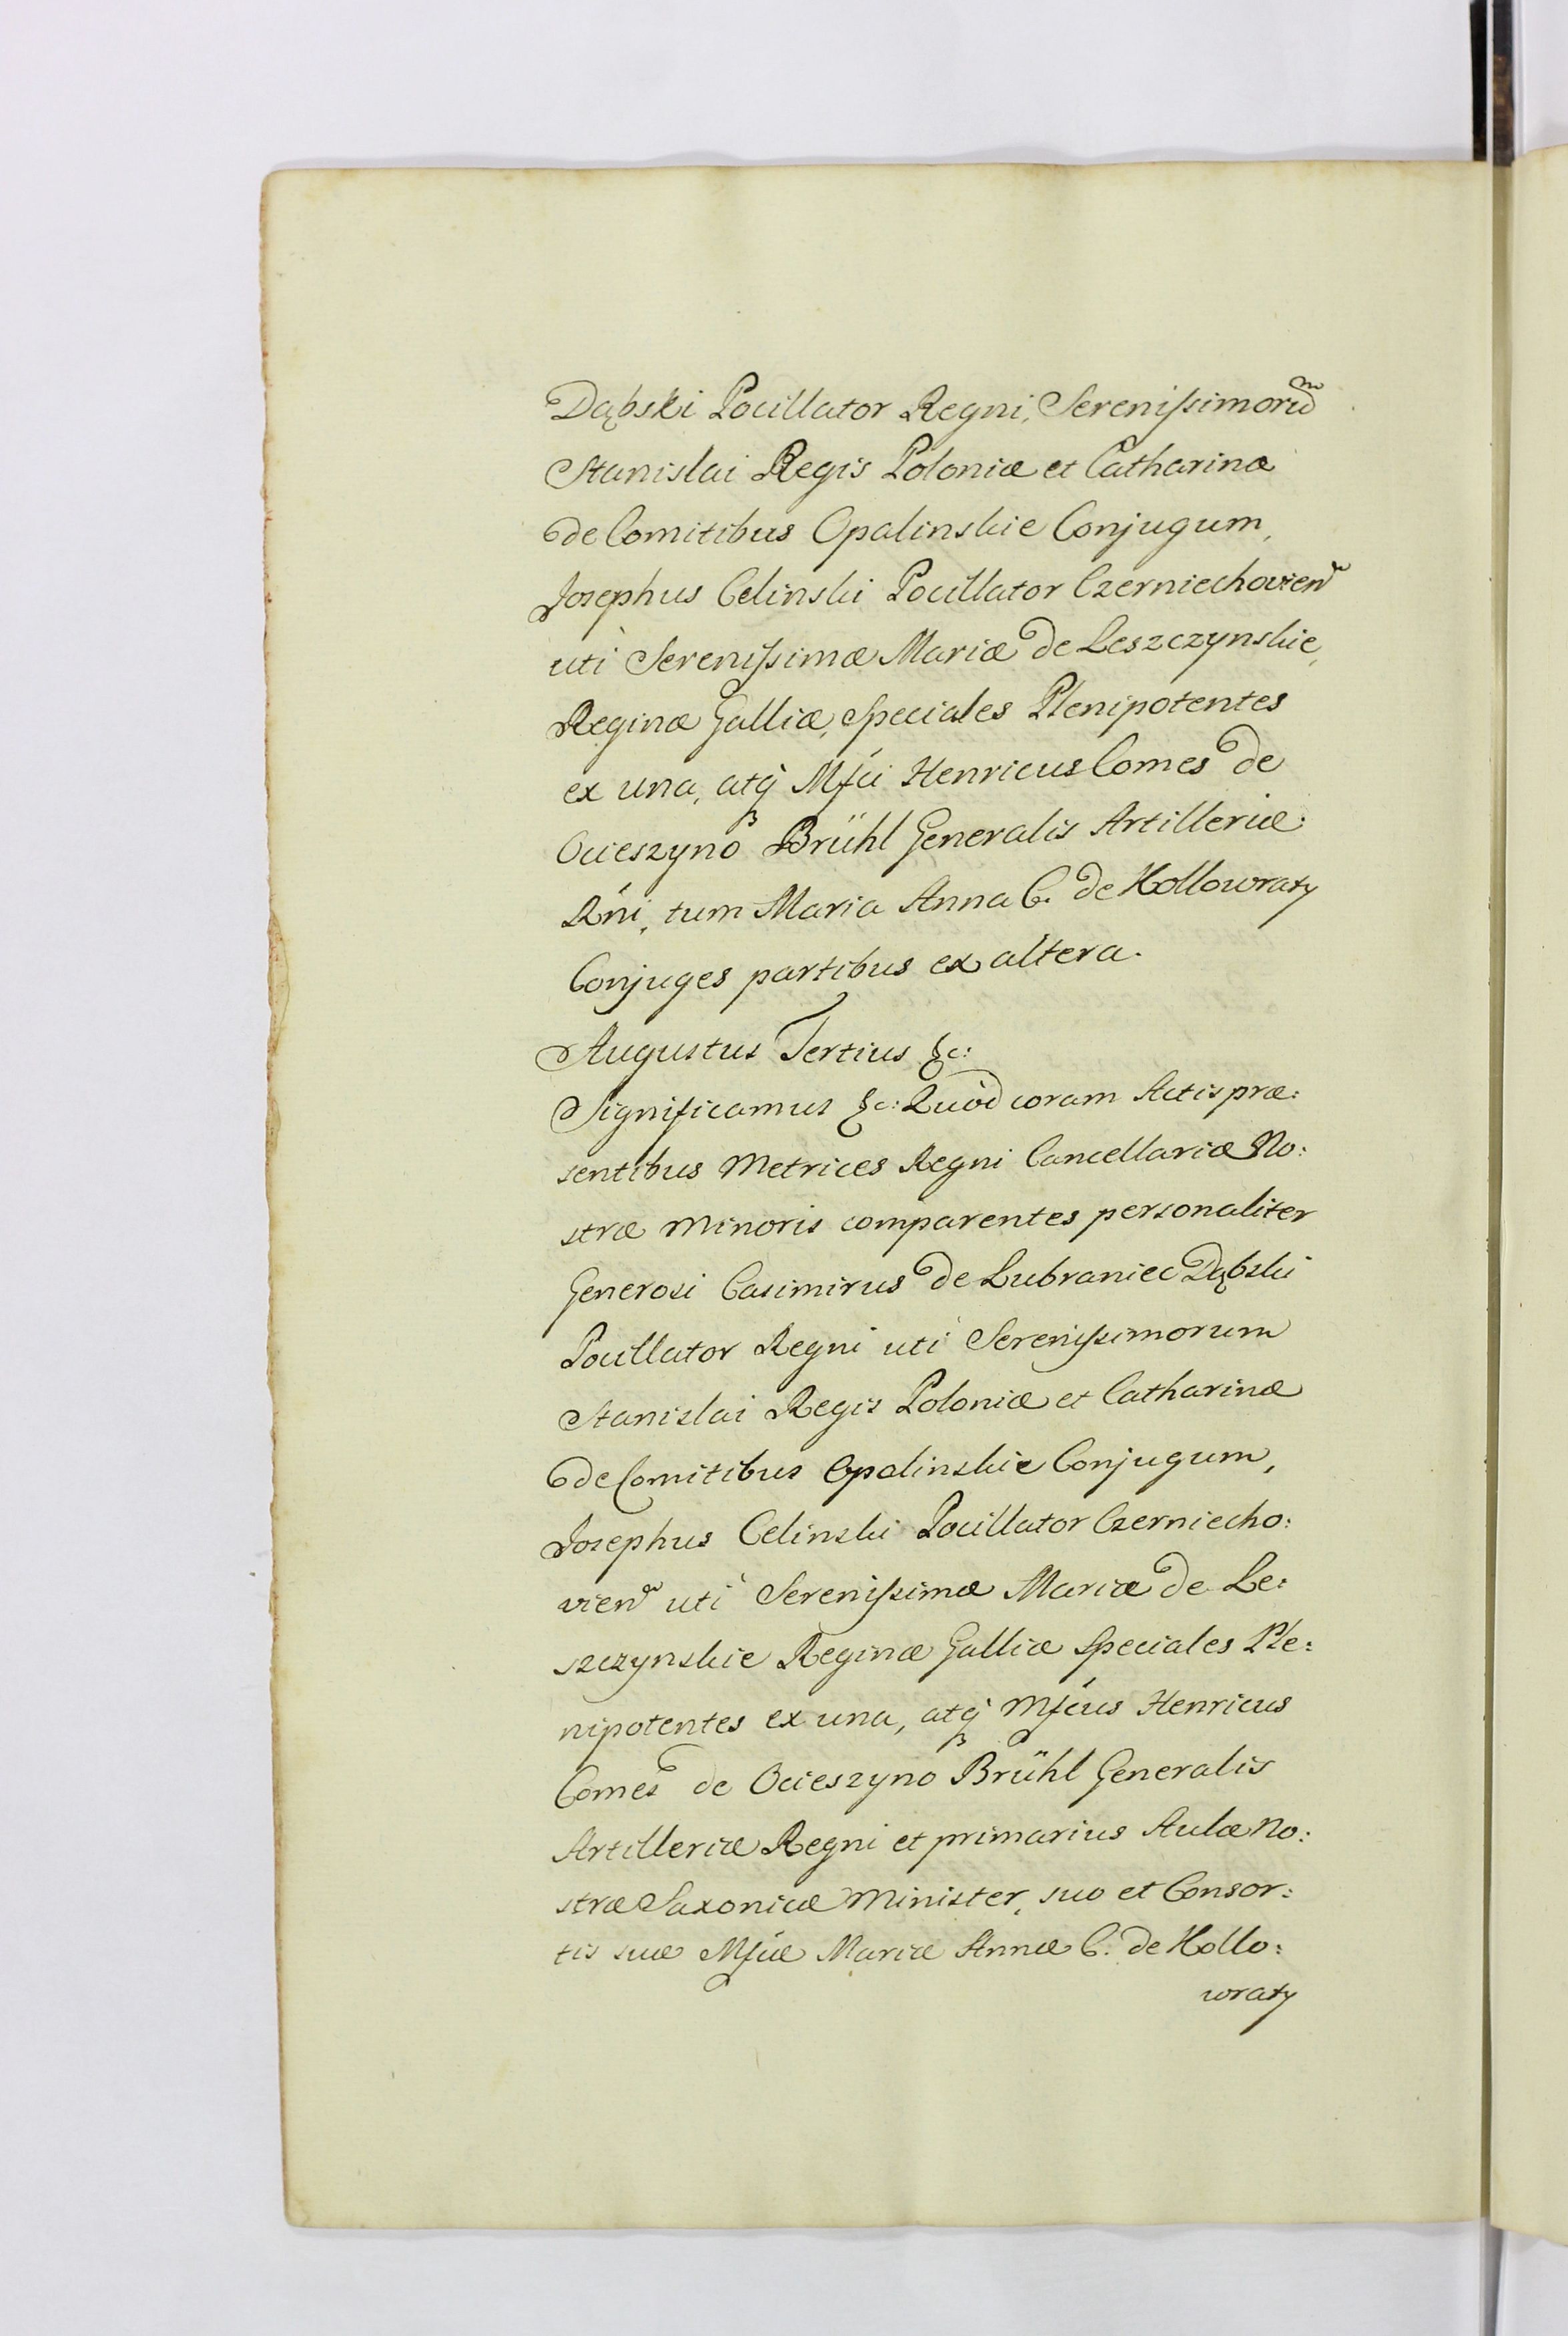 Dąbski Pocillator Regni, Serenissimorũ
Stanislai Regis Poloniæ et Catharinæ
de Comitibus Opalinskie Conjugum,
Josephus Celinski Pocillator Czerniechovien̄
uti Serenissimæ Mariæ de Leszczynskie,
Reginæ Galliæ, Speciales Plenipotentes
ex una, atq́ Mfci Henricus Comes de
Ocieszyno Brühl Generalis Artilleriæ
Rńi, tum Maria Anna C. de Kollowraty
Conjuges partibus ex altera.
Augustus Tertius &c:
Significamus &c: Quòd coram Actis præ:
sentibus Metrices Regni Cancellariæ No:
stræ Minoris comparentes personaliter
Generosi Casimirus de Lubraniec Dąbski
Pocillator Regni uti Serenissimorum
Stanislai Regis Poloniæ et Catharinæ
de Comitibus Opalinskie Conjugum,
Josephus Celinski Pocillator Czerniecho:
vien̄ uti Serenissimæ Mariæ de Le:
szczynskie Reginæ Galliæ Speciales Ple:
nipotentes ex una, atq́ Mfcus Henricus
Comes de Ocieszyno Brühl Generalis
Artilleriæ Regni et primarius Aulæ No:
stræ Saxonicæ Minister, suo et Consor:
tis suæ Mfcæ Mariæ Annæ C. de Kollo:
wraty